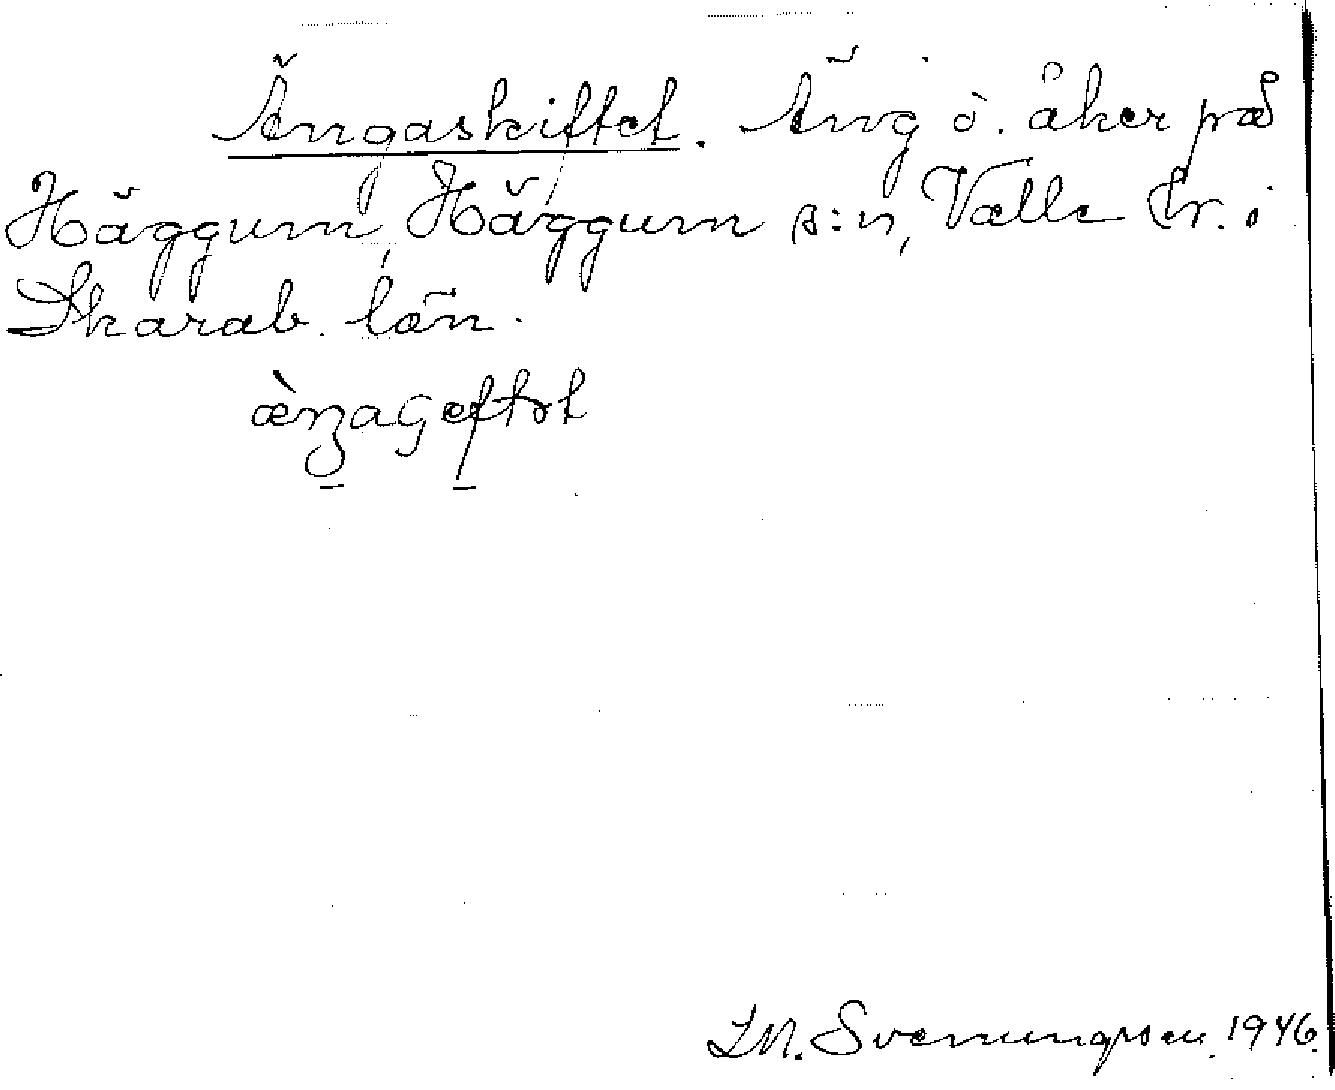 Ängaskiftet. Äng o. åker på
Häggum, Häggum s:n, Valle hr. i
Skarab. län.
S. M. Svenungsson. 1946.